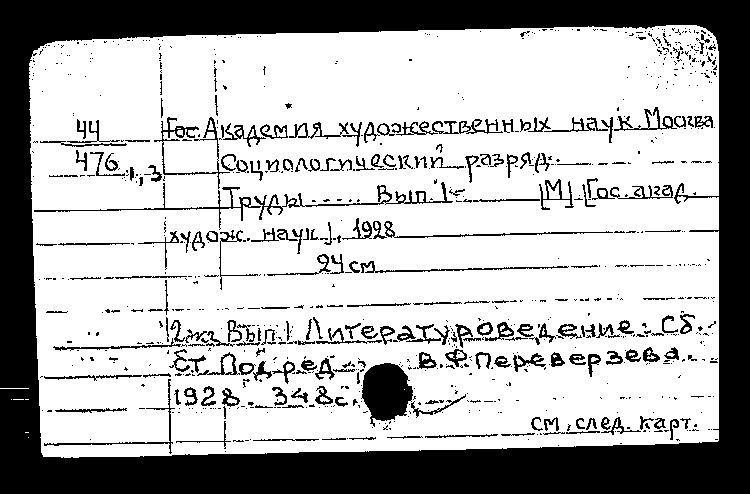 44
476 1,3
Гос. Академия художественных наук. Москва
Социологический разряд.
Труды..... Вып. 1- [М] [Гос. акад.
худож. наук], 1928
24 см
2 жз Вып. 1 Литературоведение: Сб.
ст. Под ред. В.Ф. Переверзева.
1928. 348с.
см. след. карт.